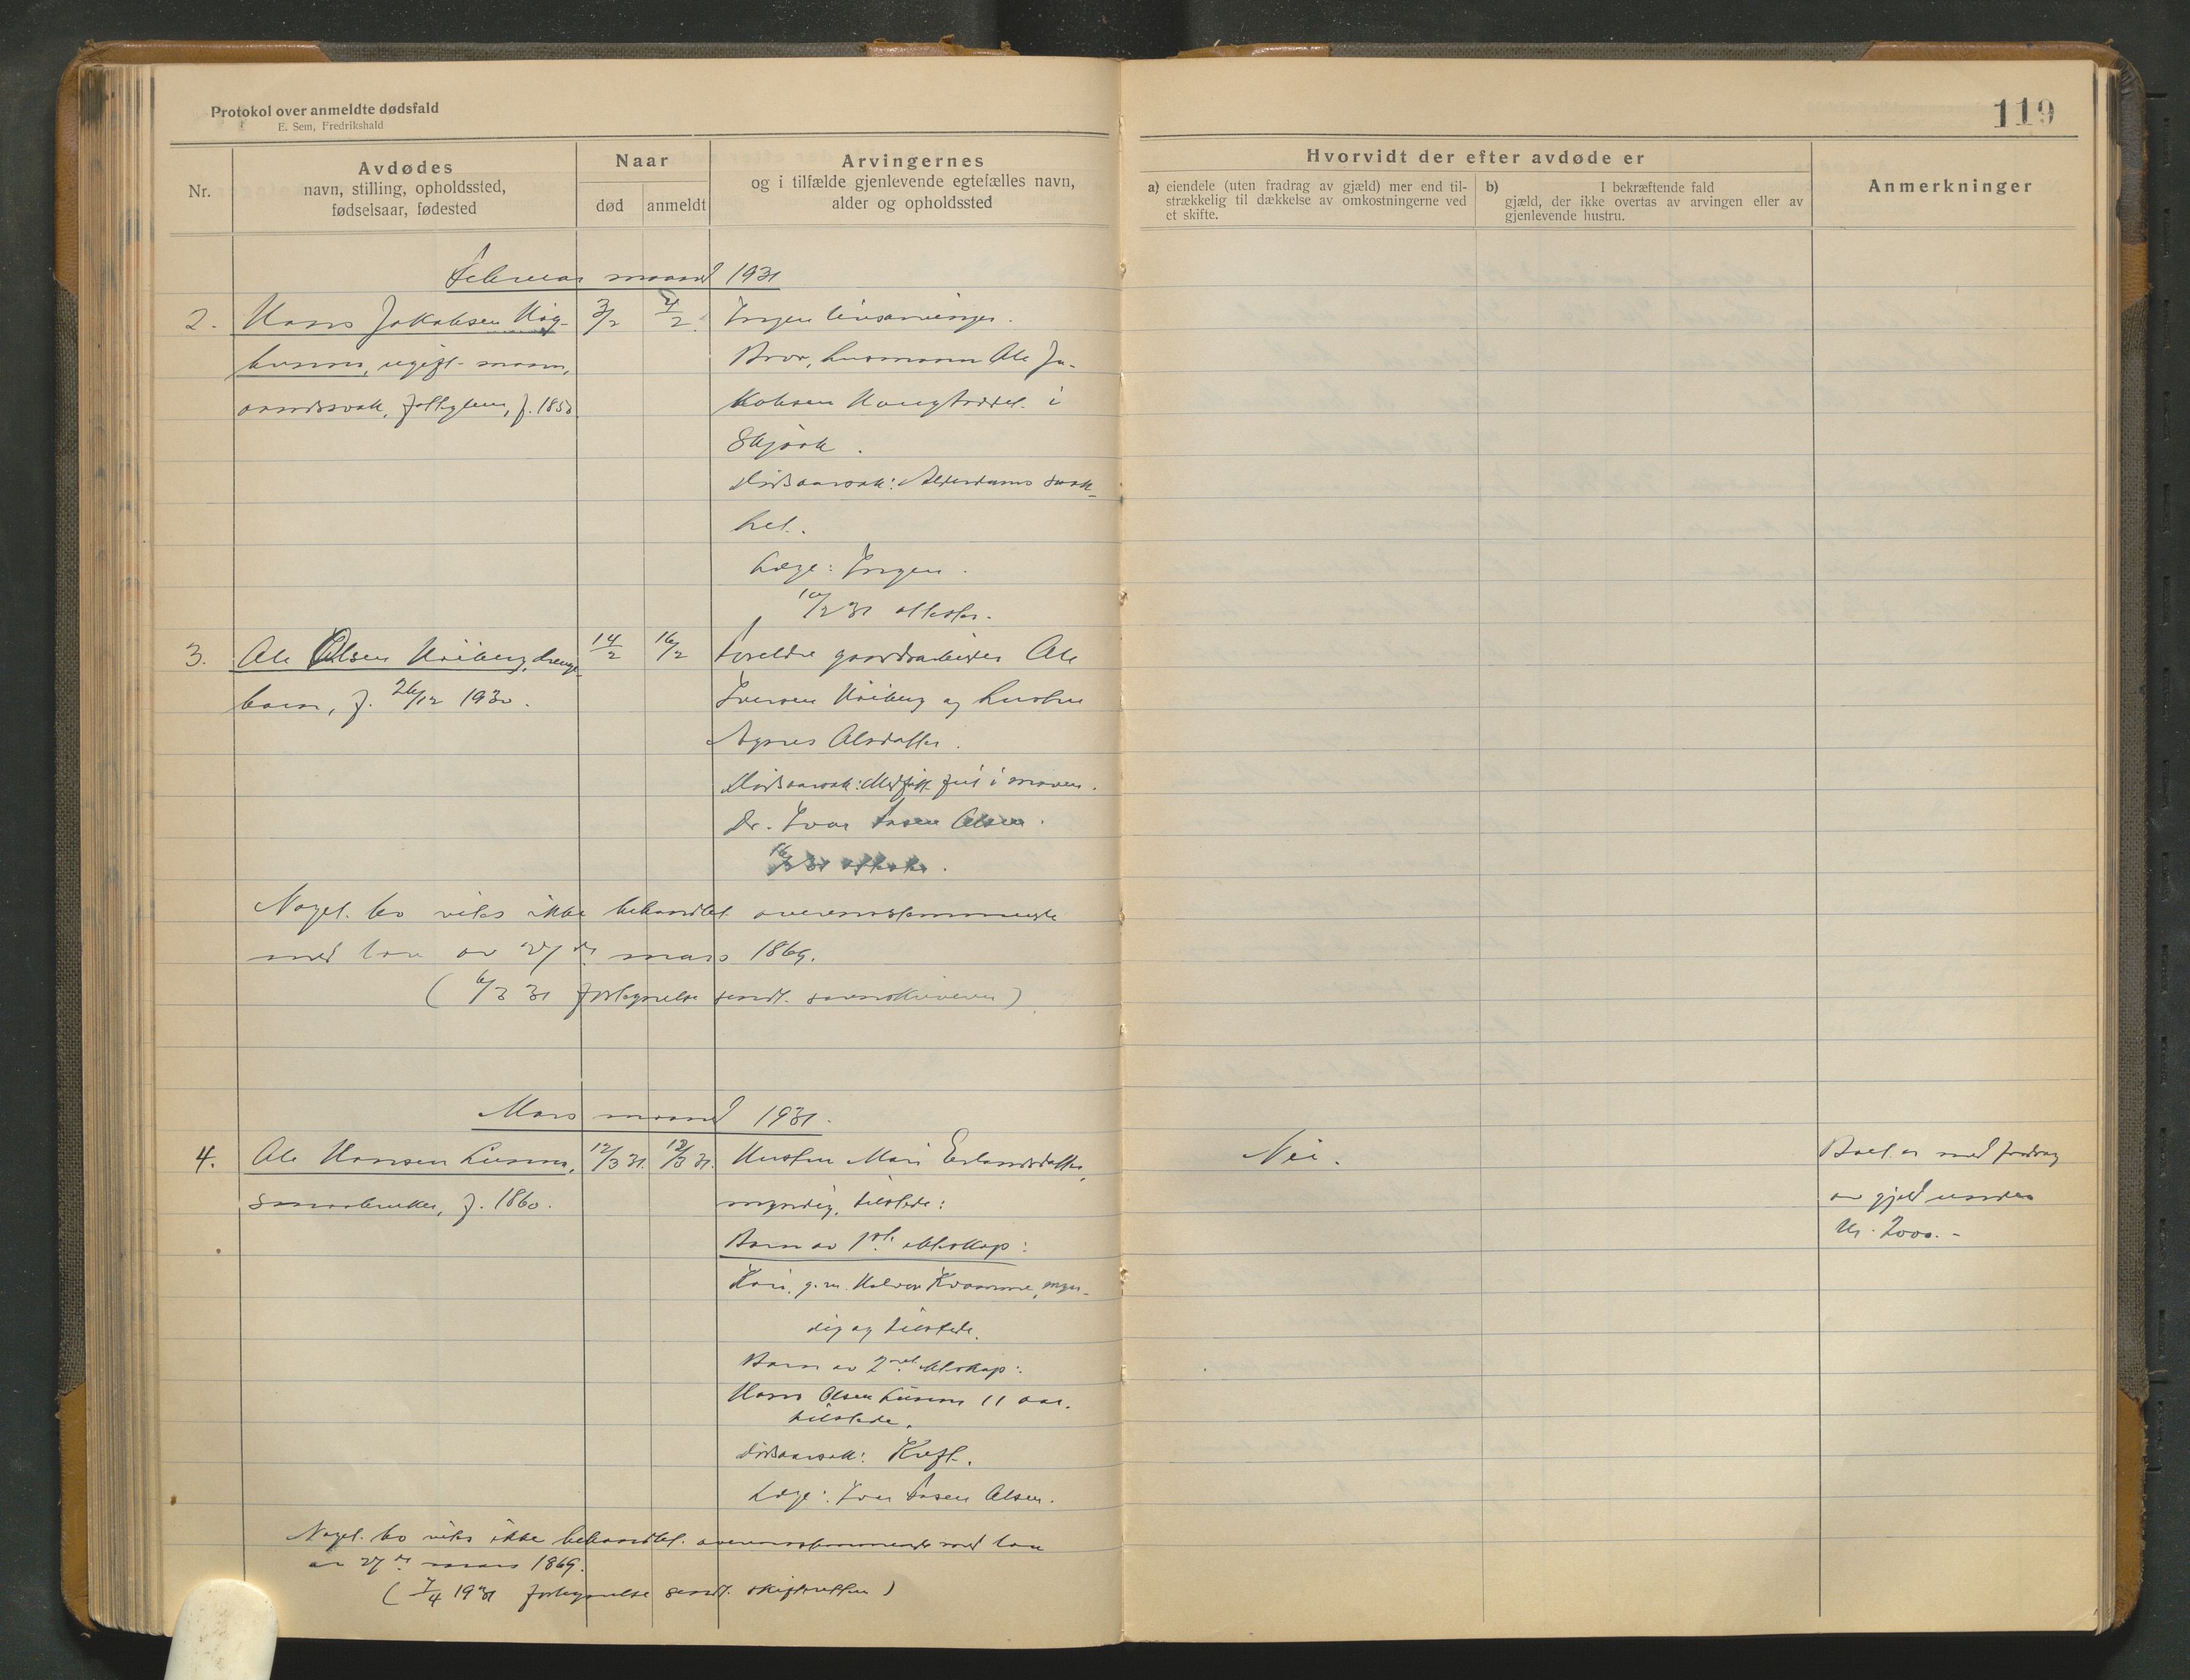 Protokol over anmeldte dødsfald
E. Sem, Fredrikshald
119
Nr.
Avdødes
navn, stilling, opholdssted,
fødselsaar, fødested
Naar
død anmeldt
Arvingernes
og i tilfælde gjenlevende egtefælles navn,
alder og opholdssted
Hvorvidt der efter avdøde er
a) eiendele (uten fradrag av gjæld) mer end til-
strækkelig til dækkelse av omkostningerne ved
et skifte.
b) I bekræftende fald
gjæld, der ikke overtas av arvingen eller av
gjenlevende hustru.
Anmerkninger
Februar maaned 1931
2. Hans Jakobsen
ugift mann,
aandssvak, f. 185
3/2 4/2
Ingen livsarvinger.
Bror, husmann Ole Ja-
kobsen i
Skjåk.
Dødsaarsak: Alderdoms svak-
het.
Læge: Ingen.
10/2 31 attester.
3. Ole Olsen Høiberg, drenge-
barn, f. 26/12 1930.
14/2 16/2
Foreldre gaardsarbeider Ole
Iversen Høiberg og hustru
Agnes Olsdatter.
Dødsaarsak: Medfødt feil i maven.
Dr. Ivar Aasen Olsen.
16/2 31 attester.
Noget bo vites ikke behandlet overensstemmende
med lov av 27de mars 1869.
( 6/3 31 fortegnelse sendt sorenskriveren )
Mars maaned 1931.
4. Ole Hansen
smaabruker, f. 1860.
12/3 31. 13/3 31.
Hustru Mari Erlandsdatter,
myndig, tilstede:
Barn av 1ste ekteskap:
Kari, g.m. Halvor Kvamme, myn-
dig og tilstede.
Barn av 2net ekteskap:
Hans Olsen 11 aar.
tilstede.
Dødsaarsak: Kreft.
Læge: Ivar Aasen Olsen.
Nei.
Boet er med fradrag
av gjeld under
kr. 2000.-
Noget bo vites ikke behandlet overensstemmende med lov
av 27de mars 1869.
( 7/4 1931 fortegnelse sendt skifteretten )